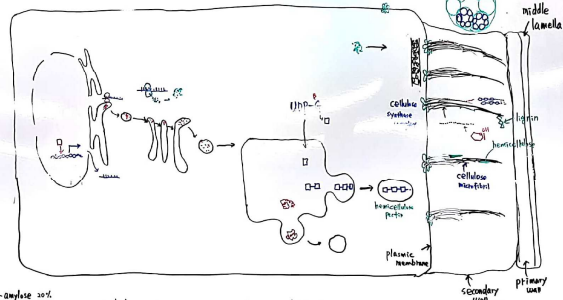 middle
lamella
UDP-G
cellulose
synthase
lignin
hemicellulose
cellulose
microfibril
hemicellulose
pectin
plasmic
membrane
secondary
wall
primary
wall
amylose 20%